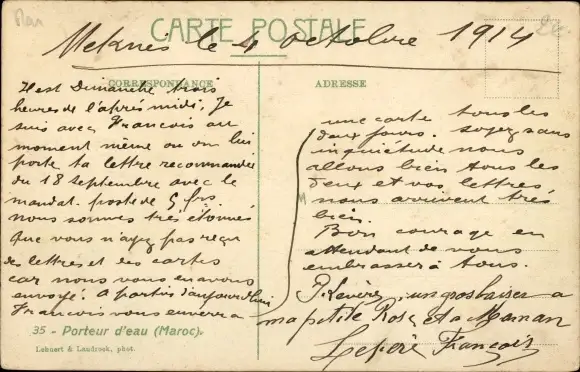 CARTE POSTALE
Meknès le 4 octobre 1914
CORRESPONDANCE
Il est Dimanche trois
heures de l'après midi. Je
suis avec Francois au
moment même ou on lui
porte ta lettre recommandée
du 18 Septembre avec le
mandat-poste de 5 frs.
nous sommes très étonnés
que vous n'ayez pas reçu
des lettres et des cartes
car nous vous en avons
envoyé. A partir d'aujourd'hui
Francois vous enverra
ADRESSE
une carte tous les
deux jours. soyez sans
inquiétude nous
allons bien tous les
deux et vos lettres
nous arrivent très
bien.
Bon courage en
attendant de vous
embrasser à tous.
un gros baiser a
ma petite Rose et a Maman
Le père François
35 - Porteur d'eau (Maroc).
Lehnert & Landrock, phot.